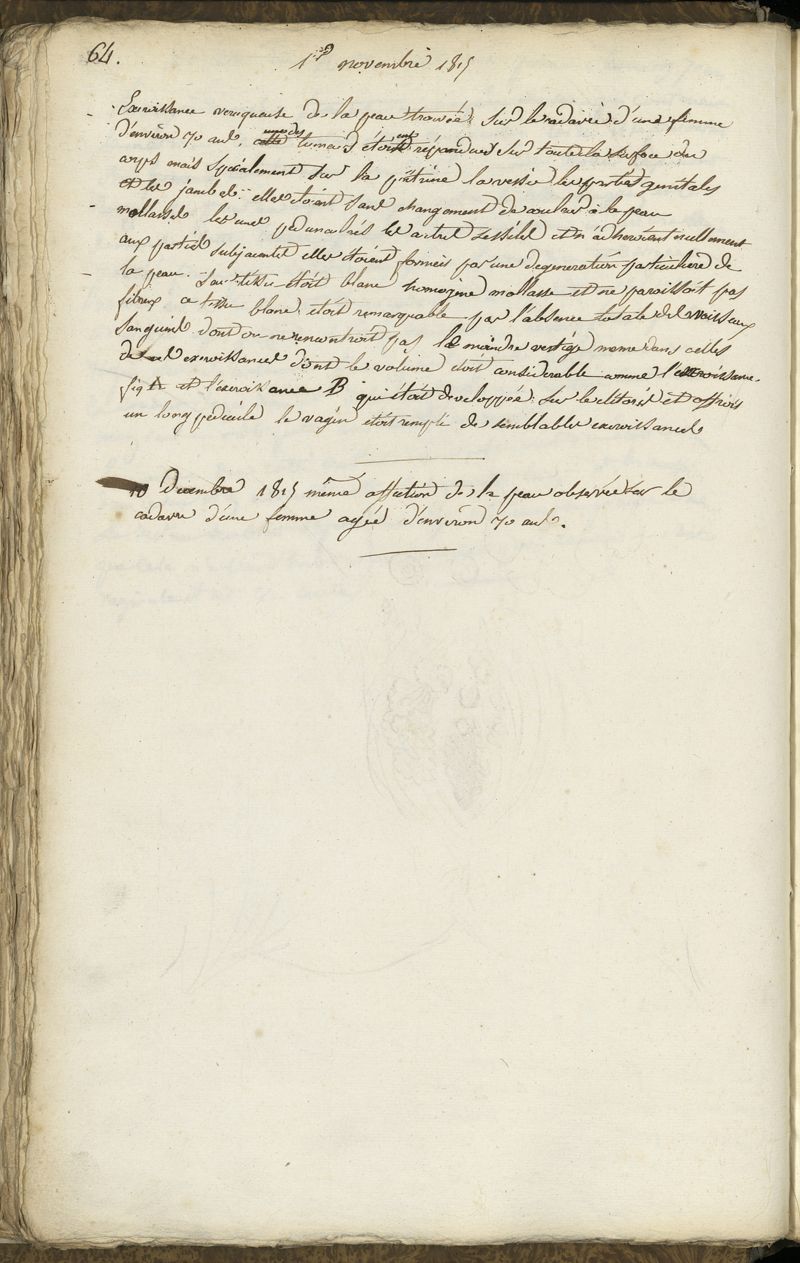 64.
1er novembre 1815
Excroissance verruqueuse de la peau trouvée sur le cadavre d'une femme
d'environ 70 ans, ces tumeurs étoient répandues sur toute la surface du
corps mais spécialement sur la poitrine la vessie les parties genitales
et les jambes: elles étoient sans changement de couleur à la peau
mollasses les unes pedunculées les autres sessiles et n'adheroient nullement
aux parties subjacentes elles étoient formées par une degeneration particuliere de
la peau. Leur tissu étoit blanc homogene mollasse et ne paroissoit pas
fibreux ce tissu blanc étoit remarquable par l'absence totale des vaisseaux
sanguins dont on ne rencontroit pas le moindre vestige meme dans celles
de ces excroissances dont le volume étoit considerable comme l'excroissance
fig A et l'excroissance B qui étoit developpée sur le clitoris et offroit
un long pedicule le vagin étoit rempli de semblables excroissances
10 Decembre 1815 même affection de la peau observée sur le
cadavre d'une femme agée d'environ 70 ans.